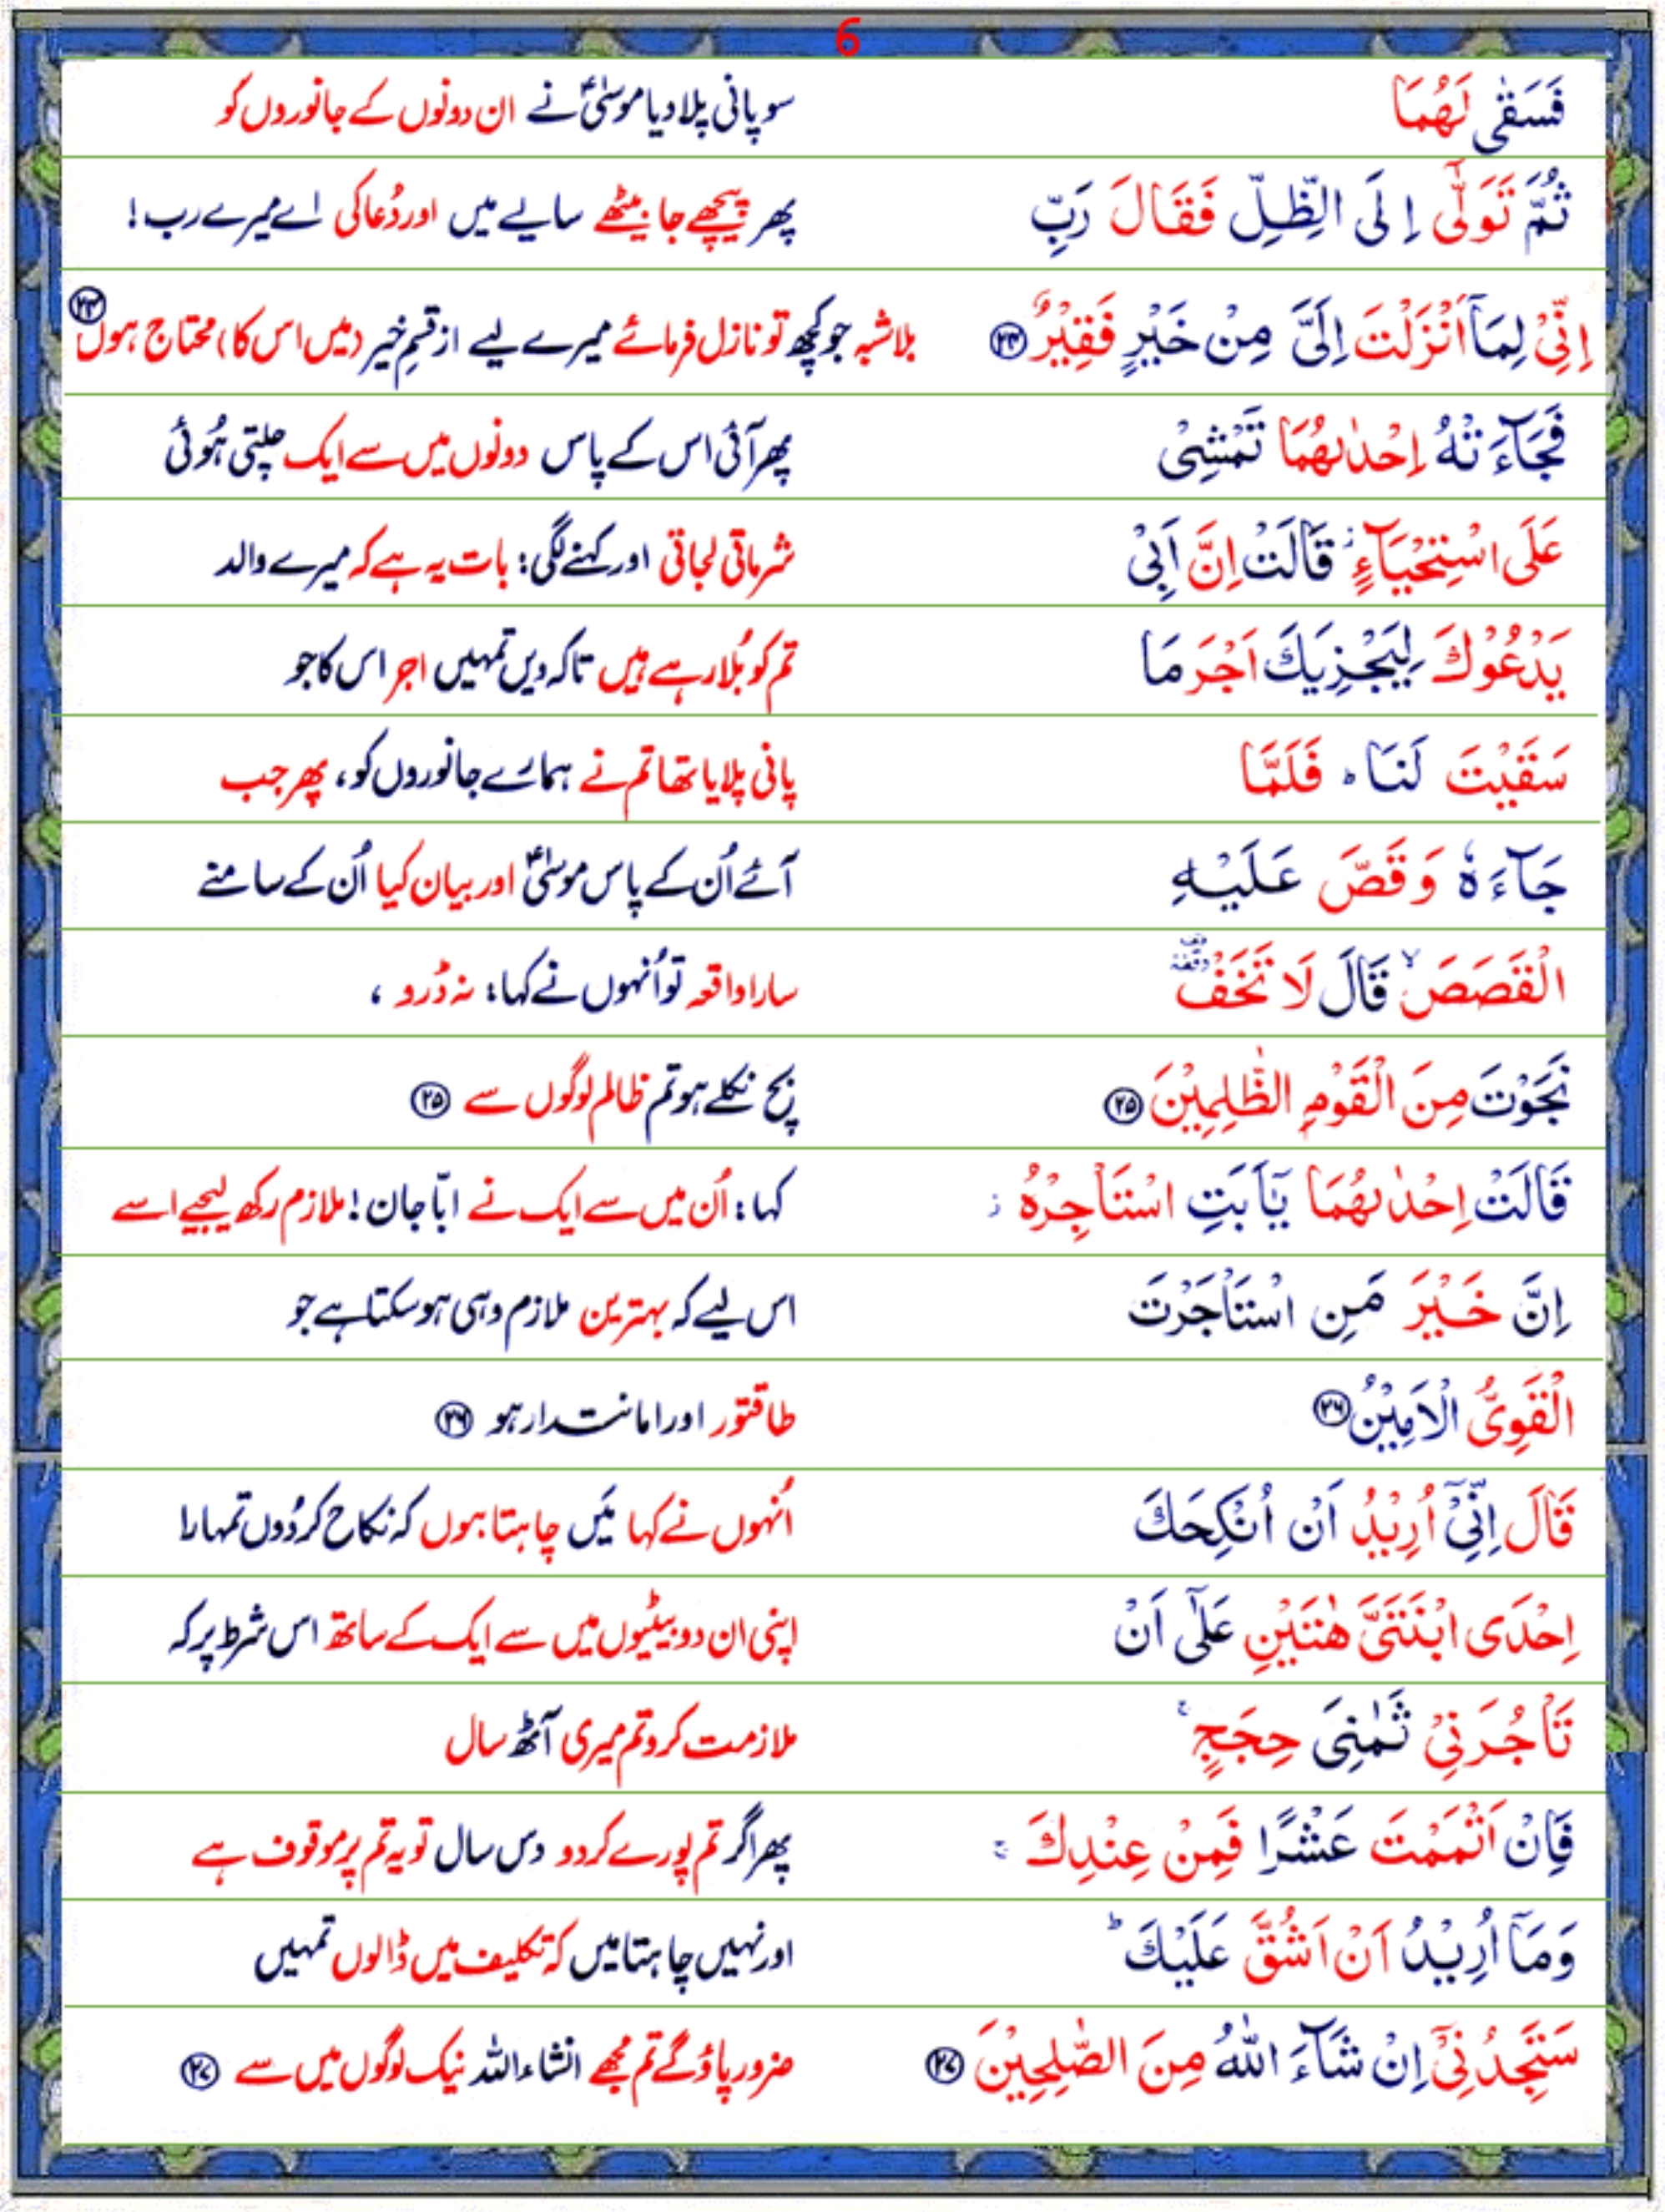 6
فَسَقٰى لَهُمَا سو پانی پلا دیا موسٰیؑ نے ان دونوں کے جانوروں کو
ثُمَّ تَوَلّٰٓى اِلَى الظِّلِّ فَقَالَ رَبِّ پھر پیچھے جا بیٹھے سایے میں اور دُعا کی اے میرے رب!
اِنِّىْ لِمَآ اَنْزَلْتَ اِلَىَّ مِنْ خَيْرٍ فَقِيْرٌ ۟ ۲۴ بلاشبہ جو کچھ تو نازل فرمائے میرے لیے از قسمِ خیر (میں اس کا) محتاج ہوں ۲۴
فَجَآءَتْهُ اِحْدٰىهُمَا تَمْشِىْ پھر آئی اس کے پاس دونوں میں سے ایک چلتی ہُوئی
عَلَى اسْتِحْيَآءٍ ۫ قَالَتْ اِنَّ اَبِىْ شرماتی لجاتی اور کہنے لگی: بات یہ ہے کہ میرے والد
يَدْعُوْكَ لِيَجْزِيَكَ اَجْرَ مَا تم کو بُلا رہے ہیں تاکہ دیں تمہیں اجر اس کا جو
سَقَيْتَ لَنَا ؕ فَلَمَّا پانی پلایا تھا تم نے ہمارے جانوروں کو، پھر جب
جَآءَهٗ وَقَصَّ عَلَيْهِ آئے اُن کے پاس موسٰیؑ اور بیان کیا اُن کے سامنے
الْقَصَصَ ۙ قَالَ لَا تَخَفْ ۥوقفة سارا واقعہ تو اُنہوں نے کہا: نہ ڈرو ،
نَجَوْتَ مِنَ الْقَوْمِ الظّٰلِمِيْنَ ۲۵ بچ نکلے ہو تم ظالم لوگوں سے ۲۵
قَالَتْ اِحْدٰىهُمَا يٰۤاَبَتِ اسْتَاْجِرْهُ ۫ کہا: اُن میں سے ایک نے ابّا جان! ملازم رکھ لیجیے اسے
اِنَّ خَيْرَ مَنِ اسْتَاْجَرْتَ اس لیے کہ بہترین ملازم وہی ہو سکتا ہے جو
الْقَوِىُّ الْاَمِيْنُ ۲۶ طاقتور اور امانت دار ہو ۲۶
قَالَ اِنِّىْٓ اُرِيْدُ اَنْ اُنْكِحَكَ اُنہوں نے کہا مَیں چاہتا ہوں کہ نکاح کر دُوں تمہارا
اِحْدَى ابْنَتَىَّ هٰتَيْنِ عَلٰٓى اَنْ اپنی ان دو بیٹیوں میں سے ایک کے ساتھ اس شرط پر کہ
تَاْجُرَنِىْ ثَمٰنِىَ حِجَجٍ ۚ ملازمت کرو تم میری آٹھ سال
فَاِنْ اَتْمَمْتَ عَشْرًا فَمِنْ عِنْدِكَ ۚ پھر اگر تم پورے کر دو دس سال تو یہ تم پر موقوف ہے
وَمَآ اُرِيْدُ اَنْ اَشُقَّ عَلَيْكَ ؕ اور نہیں چاہتا میں کہ تکلیف میں ڈالوں تمہیں
سَتَجِدُنِىْٓ اِنْ شَآءَ اللّٰهُ مِنَ الصّٰلِحِيْنَ ۲۷ ضرور پاؤ گے تم مجھے انشاءاللہ نیک لوگوں میں سے ۲۷